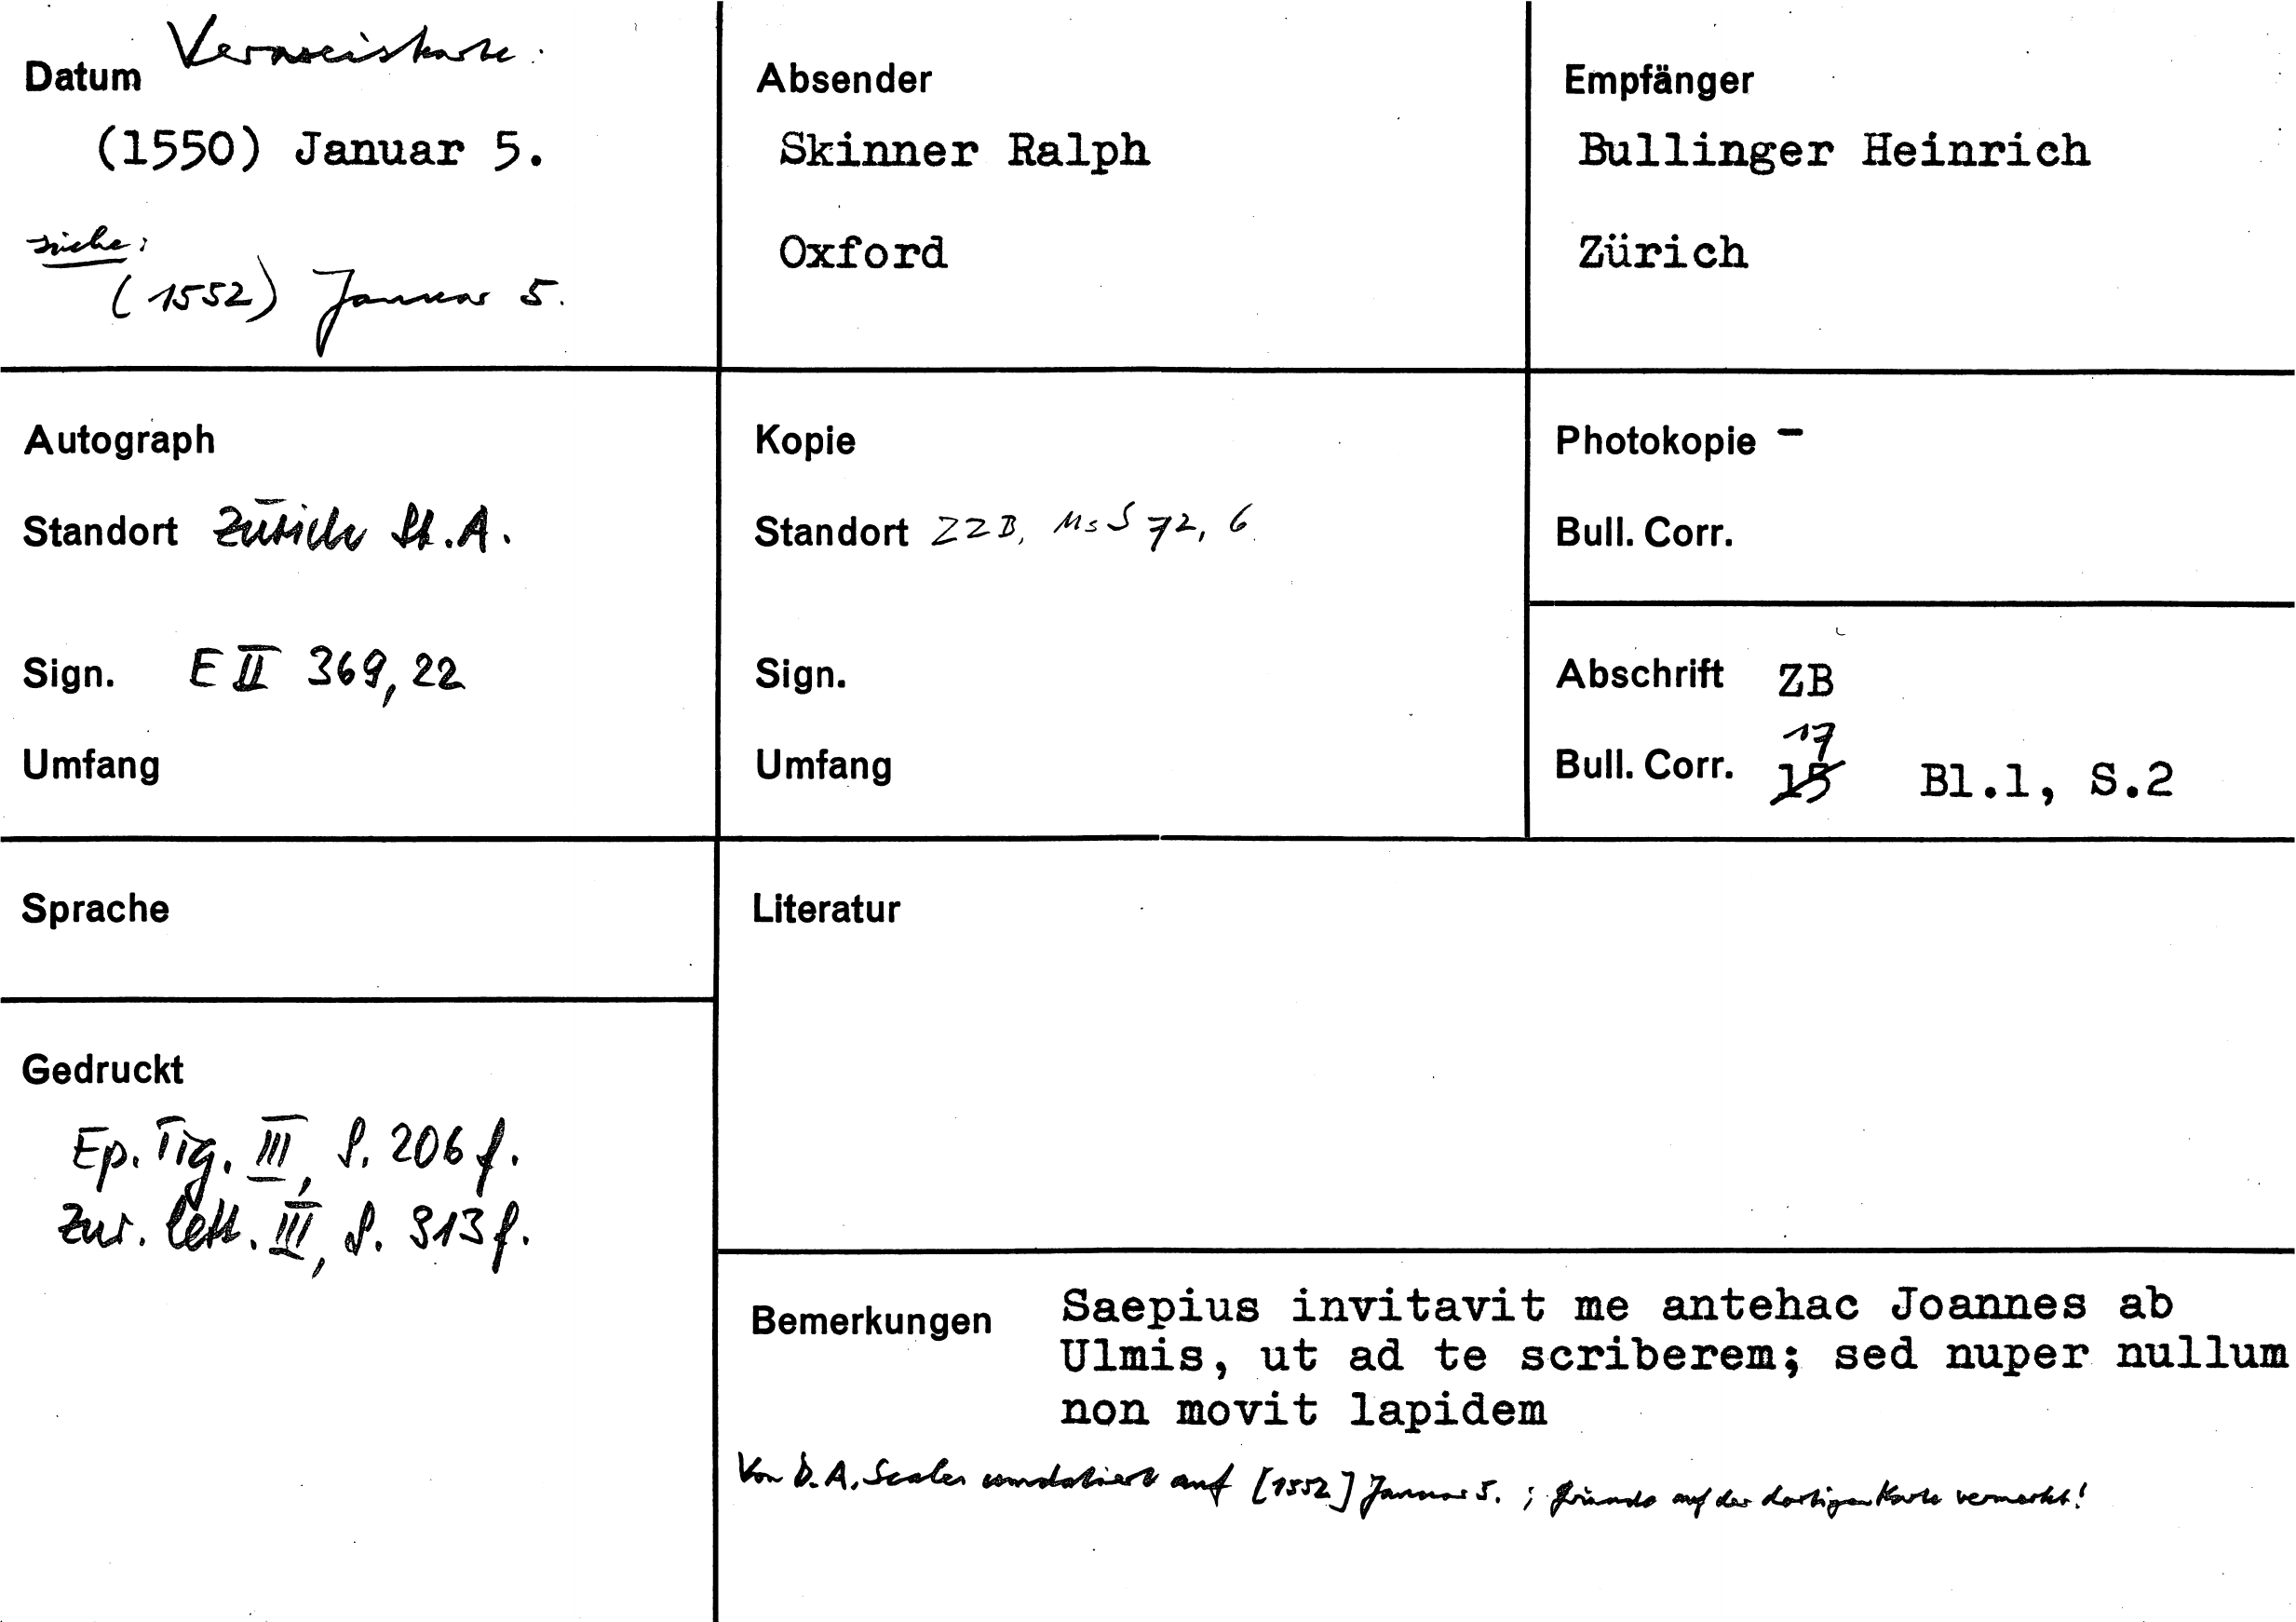 Verweiskarte:
Datum
(1550) Januar 5.
siehe:
(1552) Januar 5.
Absender
Skinner Ralph
Oxford
Empfänger
Bullinger Heinrich
Zürich
Autograph
Standort Zürich St.A.
Sign. E II 369,22
Umfang
Kopie
Standort ZZB, Ms S 72, 6
Sign.
Umfang
Photokopie -
Bull. Corr.
Abschrift ZB
17
Bull. Corr. 15 Bl.1, S.2
Sprache
Literatur
Gedruckt
Ep. Tig. III, S. 206 f.
Zur. lett. III, S. 313 f.
Bemerkungen Saepius invitavit me antehac Joannes ab
Ulmis, ut ad te scriberem; sed nuper nullum
non movit lapidem
Von D.A. Scales umdatiert auf [1552] Januar 5. ; Gründe auf der dortigen Karte vermerkt!